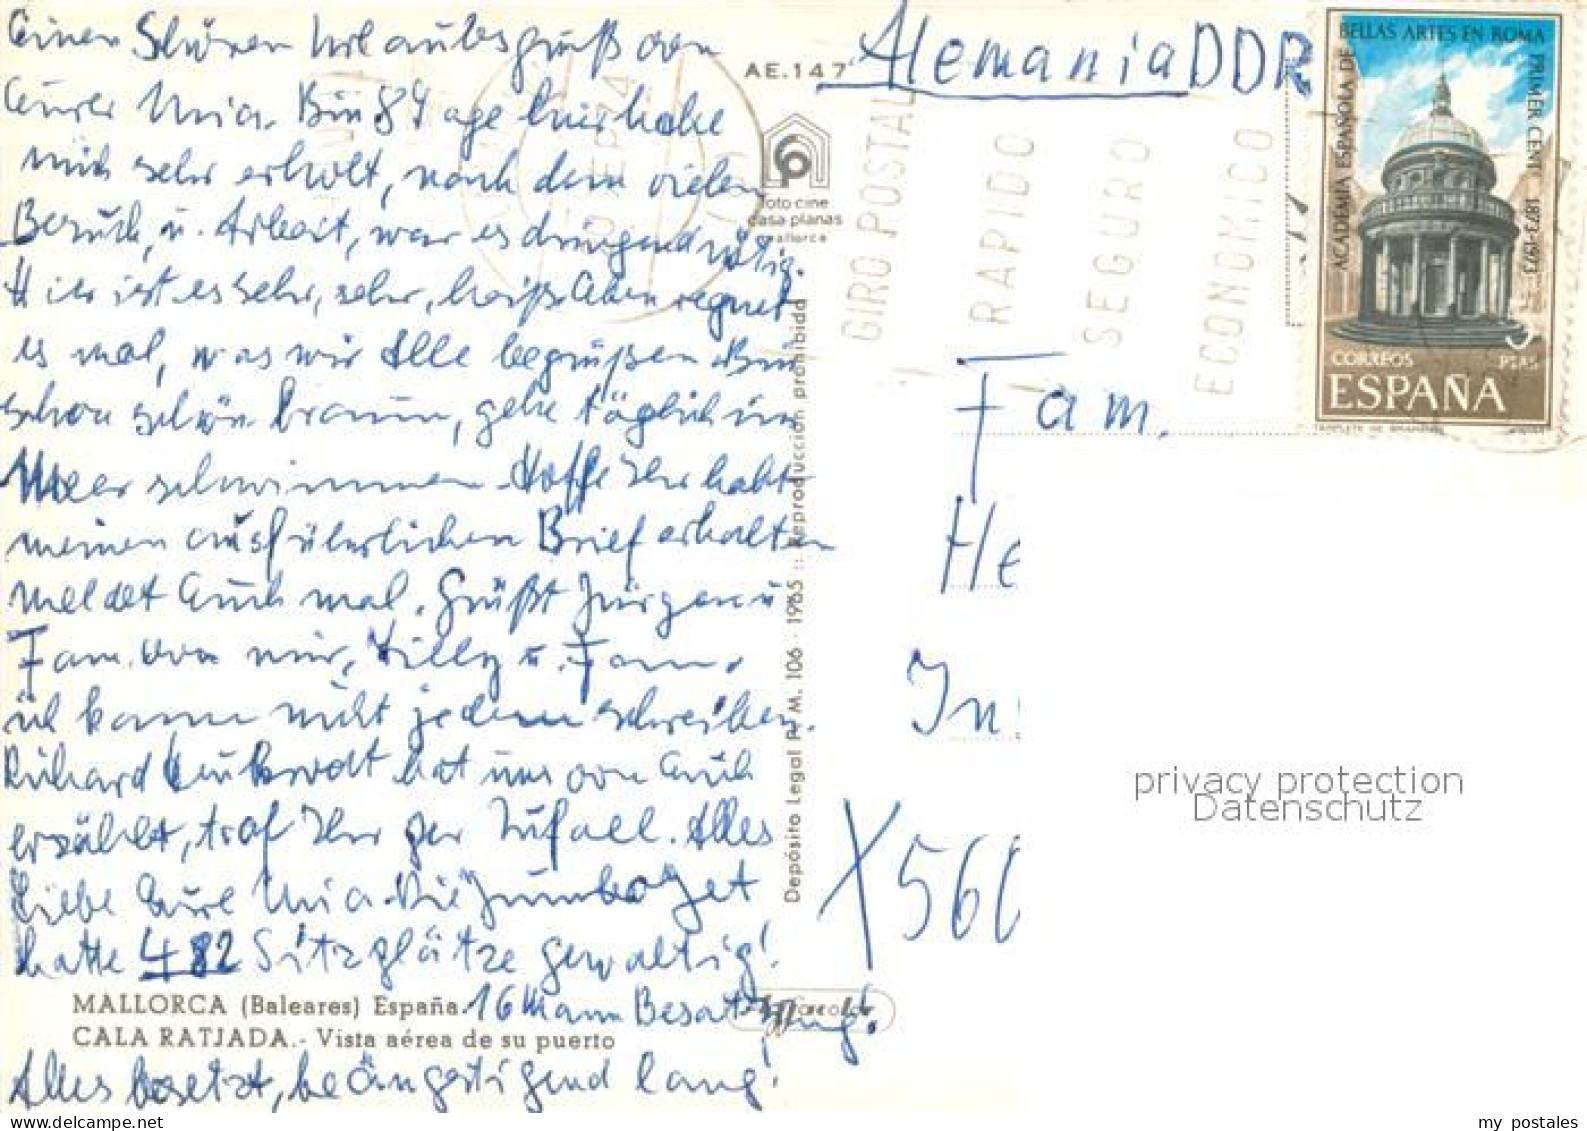 Einen Schönen Urlaubsgruß von
Eurer Mia. Bin 8 Tage hier habe
mich sehr erholt, nach dem vielen
Besuch, u. Arbeit, war es dringend nötig.
Hier ist es sehr, sehr, heiß Aben regnet
es mal, was wir Alle begrüßen Bin
schon schön braun, gehe täglich im
Meer schwimmen. Hoffe Ihr habt
meinen ausführlichen Brief erhalten
meldet Euch mal. Grüßt Jürgen u
Fam. von mir, Willy u. Fam.
ich kann nicht jedem schreiben.
Richard hat uns von Euch
erzählt, traf Ihr per Zufall. Alles
Liebe Eure Mia. Die Jumbo Jet
hatte 482 Sitzplätze gewaltig!
16 Mann Besatzung!
Alles besetzt, beängstigend lang!
MALLORCA (Baleares) España.
CALA RATJADA.- Vista aérea de su puerto
AE.147
foto cine
casa planas
mallorca
Depósito Legal P. M. 106 - 1965 :: Reproducción prohibida
Alemania DDR
Fam.
He
In
X 560
GIRO POSTAL
RAPIDO
SEGURO
ECONOMICO
SEP 74
BELLAS ARTES EN ROMA
ACADEMIA ESPAÑOLA DE
PRIMER CENT. 1873-1973
3 PTAS
CORREOS
ESPAÑA
privacy protection
Datenschutz
my postales